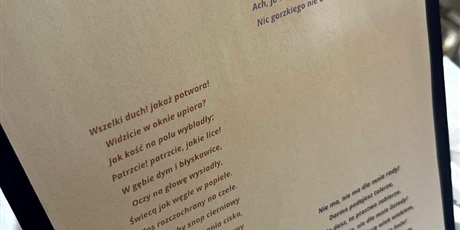 Ach, 
Nic gorzkiego nie
Wszelki duch! jakaż potwora!
Widzicie w oknie upiora?
Jak kość na polu wybladły;
Patrzcie! patrzcie, jakie lice!
W gębie dym i błyskawice,
Oczy na głowę wysiadły,
Świecą jak węgle w popiele.
rozczochrany na czele.
snop cierniowy
ciska,
Nie ma, nie ma dla mnie rady!
Darmo podajesz talerze,